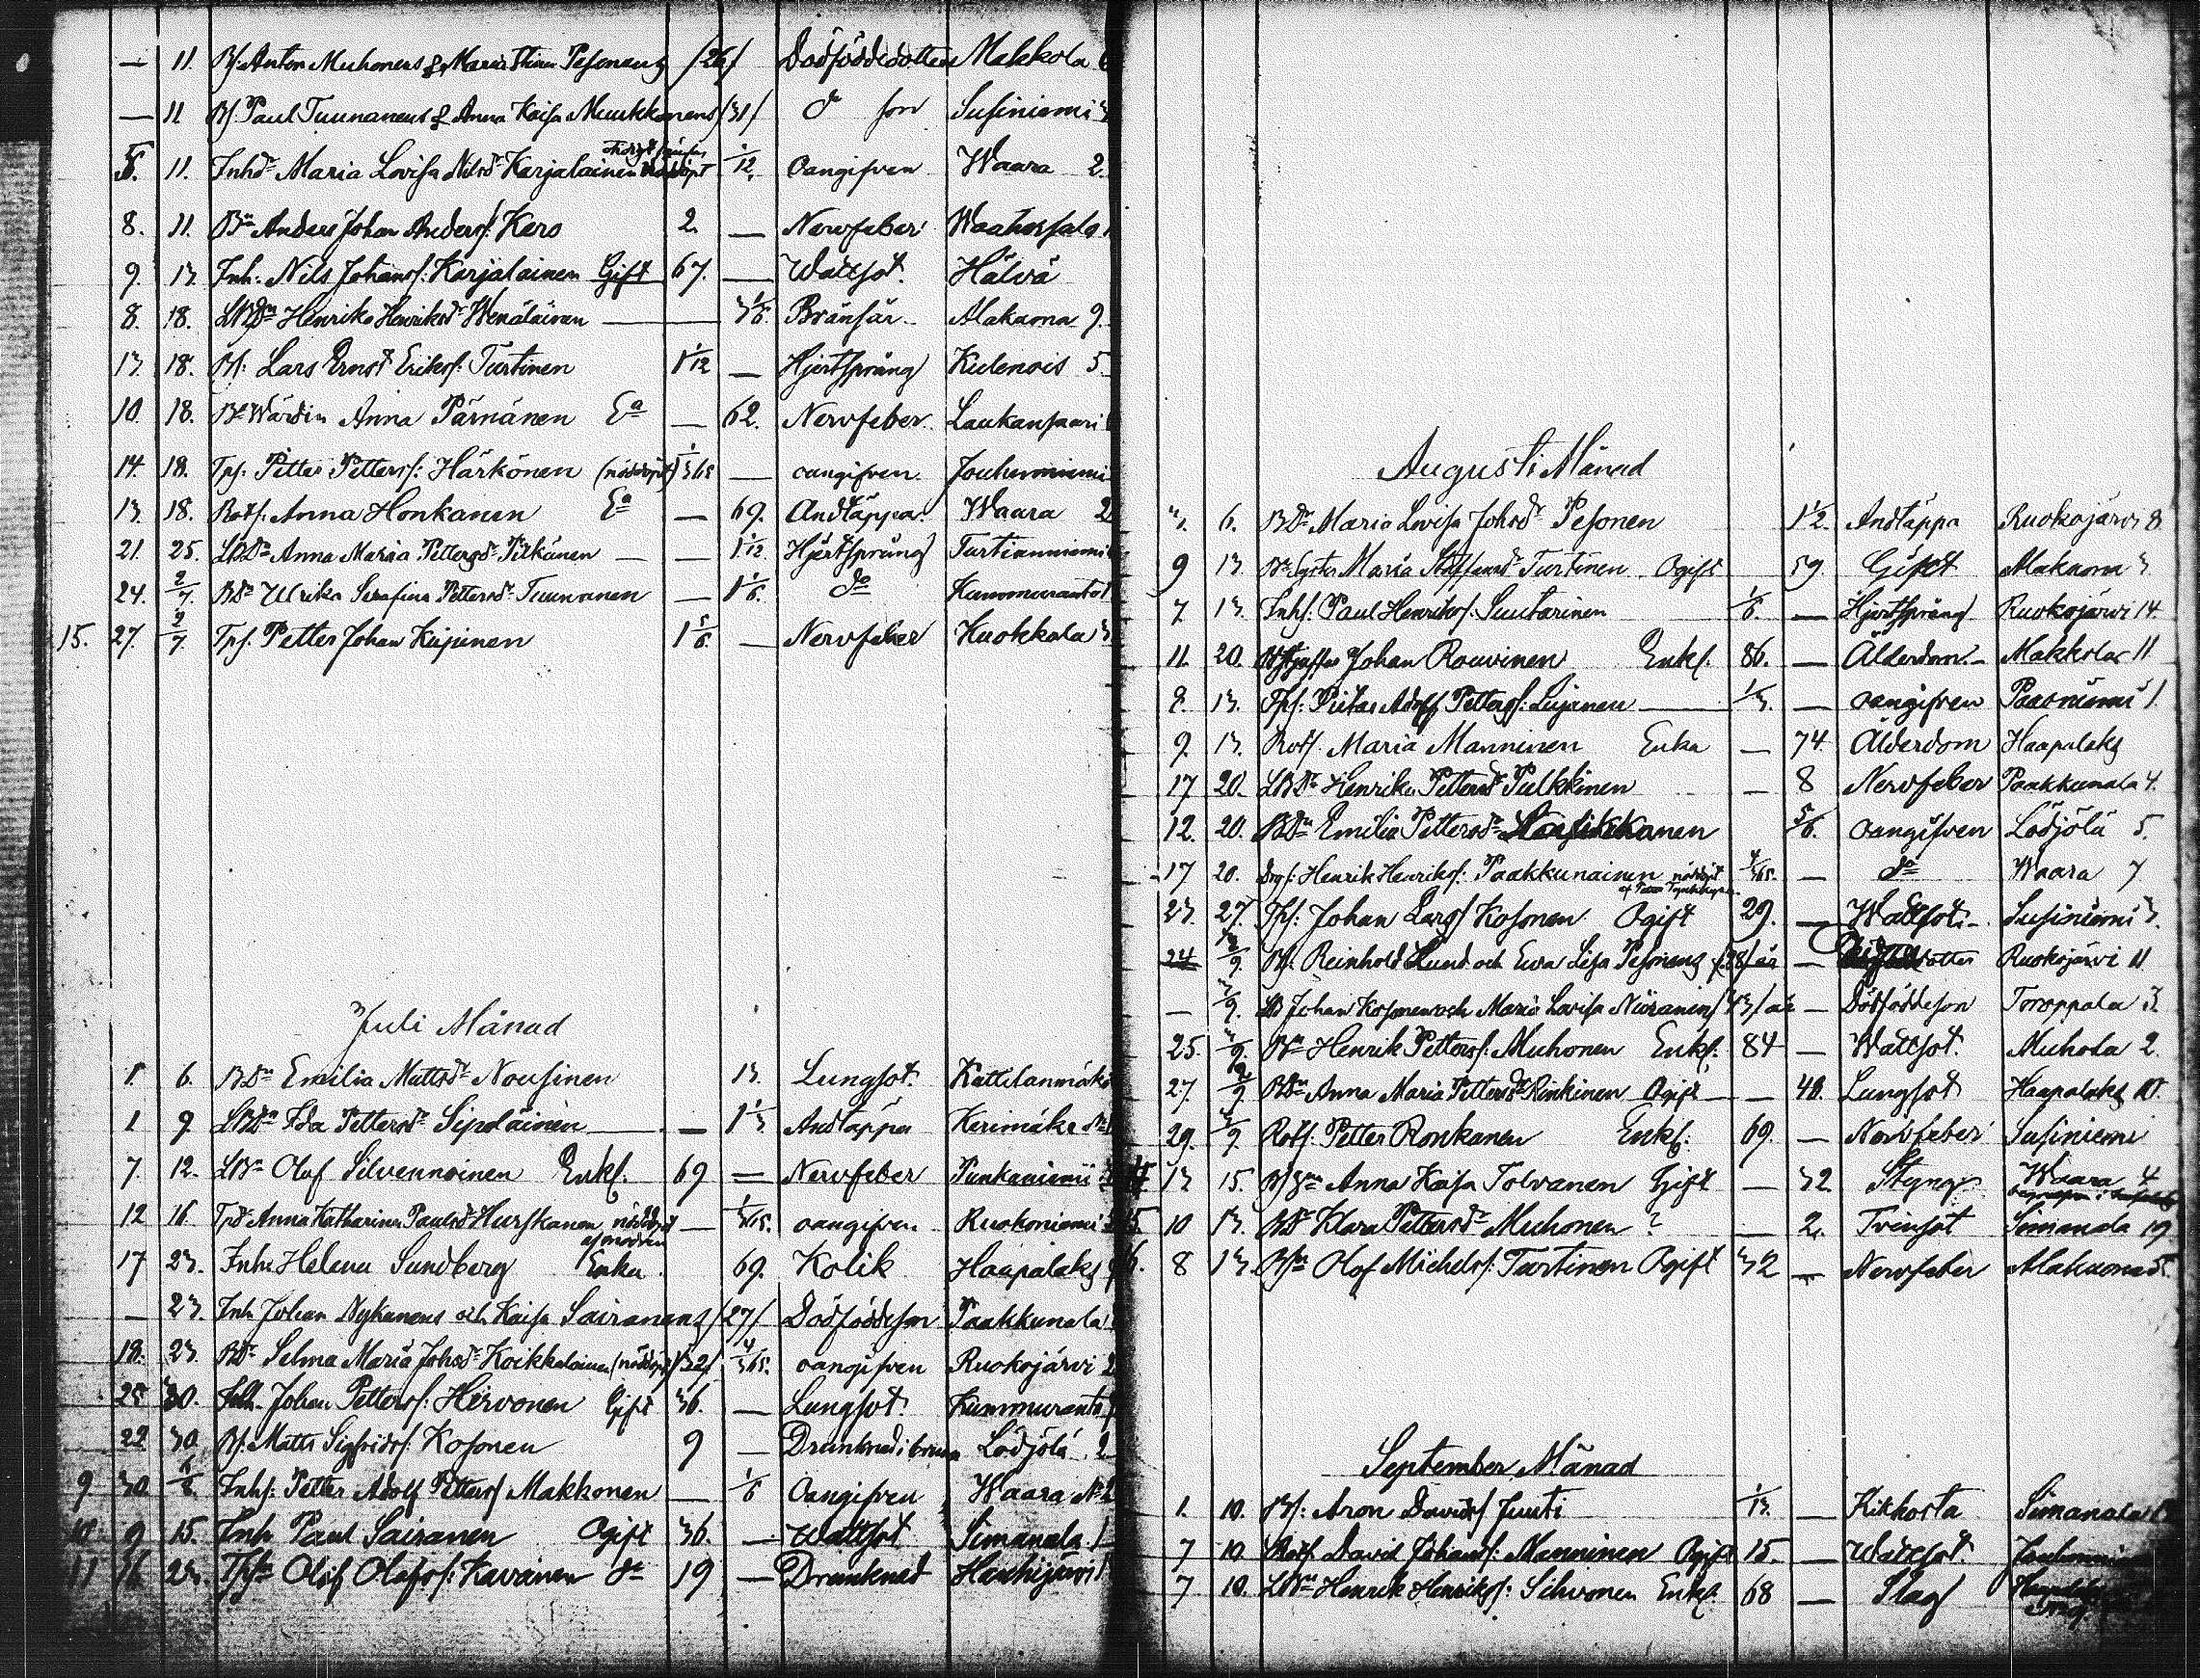 — 11. Bs. Anton Muhonens & Maria Stina Pesonens /26/ Dödföddedotter Makkola
— 11 Bs. Paul Tuunanens & Anna Kaisa Muukkonens /31/ do son Susiniemi 3
11. Inhdr Maria Lovisa Nilsdr Karjalainen 1/12. oangifven Waara 2.
8. 11. Bn Anders Johan Anders. Kero 2. — Nervfeber
9. 13. Inh. Nils Johans. Karjalainen Gift 67. — Wattsot. Hälvä
8. 18. LBDr Henrika Henriksdr Wenäläinen — Bränsår. Makuona 9.
13. 18. Bs. Lars Ernst Eriks. Turtinen 1 1/12 — Hjertsprång Kulennois 5
10. 18. Bdewärdin Anna Pärnänen Ea — 62. Nervfeber. Laukansaari
14. 18. Tps. Petter Petters. Härkönen (nöddöpt) 1/365 — oangifven. Jouhenniemi
13. 18. Rots. Anna Honkanen Ea — 69. Andtäppa. Waara 2
21. 25. LBDr Anna Maria Pettersdr Pitkänen — — 1 1/12 Hjertsprång Turtianniemi
24. 2/7. BDr Ulrika Serafina Pettersdr Tuunanen — 1 1/6. do Kummuranta
15. 27. 2/7. Tps. Petter Johan Kupinen 1 5/6. — Nervfeber Kuokkala 3
Juli Månad
1. 6. BDr Emilia Mattsdr Nousinen 13. Lungsot. Kattilanmäki
1 9. LBDr Ida Pettersdr Sipoläinen — 1 1/3 Andtäppa Kerimäki
7. 12. LBn Olof Silvennoinen Enkl. 69 — Nervfeber Punkaniemi
12 16. Tpdr Anna Katharina Paulsdr Hurskanen nöddöpt af modren — oangifven Ruokoniemi
17 23. Inhs Helena Sundberg Enka. 69. Kolik Haapalaks
— 23. Inh Johan Nykänens och Kaisa Sairanens /27/ Dödföddeson Paakkunala
18. 23. BDr Selma Maria Johsdr Koikkalainen (nöddöpt) /32/ 4/365. oangifven Ruokojärvi 2
25 30. Inh. Johan Petters. Hirvonen Gift 36. — Lungsot. Kummuranta
22 30 Bs. Matts Sigfrids. Kosonen 9 — Drunknad i brunn Lödjölä 2
9 30 6/8. Inhs. Petter Adolf Petters Makkonen — 1/6 Oangifven Waara No 2
10 9 15. Inh Paul Sairanen Ogift 36. — Wattsot Simanala 1
11 16 23. Olof Olofs. Kavanen do 19 — Drunknad Hauhijärvi
Augusti Månad
3. 6. BDr Maria Lovisa Johsdr Pesonen 1 1/2. Andtäppa Ruokojärvi 8
9 13. Bn Syster Maria Staffansdr Turtinen Ogift 59. Gikt Makuona 3
7. 13. Inhs. Paul Henriks. Suutarinen 1/6. — Hjertsprång Ruokojärvi 14.
11. 20. Johan Rouvinen Enkl. 86. — Ålderdom. Makkola 11
8. 13. Tps. Pietar Adolf Petters. Luijanen — 1/3. — oangifven Paasniemi 1.
9. 13. Rots. Maria Manninen Enka — 74. Ålderdom Haapalaks
17 20. LBDr Henrika Pettersdr Pulkkinen — 8 Nervfeber Paakkunala 4.
12. 20. BDr Emilia Pettersdr 5/6. oangifven Lödjölä 5.
17 20. Drgs. Henrik Henriks. Paakkunainen nöddöpt 4/365. — do Waara 7
23. 27. Tps. Johan Lars Kosonen Ogift 29. — Wattsot. Susiniemi 3.
24 3/9. Bs. Reinhold Lund och Eva Lisa Pesonens /28/ år — dotter Ruokojärvi 11
— 3/9. Johan Kosonen och Maria Lovisa Niiranens /43/ år — Dödföddeson Toroppala 3.
25. 3/9. Bn Henrik Petters. Muhonen Enkl. 84 — Wattsot. Muhola 2.
27. 2/9. BDr Anna Maria Pettersdr Rinkinen Ogift — — 40. Lungsot Haapalaks 10.
29. 3/9. Rots. Petter Ronkanen Enkl. 69. — Nervfeber Susiniemi
13 15. Anna Kaisa Tolvanen Gift — 32 Styng Waara 4
10 13. BDr Klara Pettersdr Muhonen ? — 2. Trinsot Simanala 19
8 13. Bn Olof Michels. Turtinen Ogift 32 — Nervfeber Makuona 5.
September Månad
1. 10. Bs: Aron Davids Juuti 1/13. — Kikhosta Simanala
7 10 Rots. David Johans: Manninen Ogift 15. — Wattsot. Jouhenniemi
7 10. LBn Henrik Henriks: Silvonen Enkl. 68 — Slag